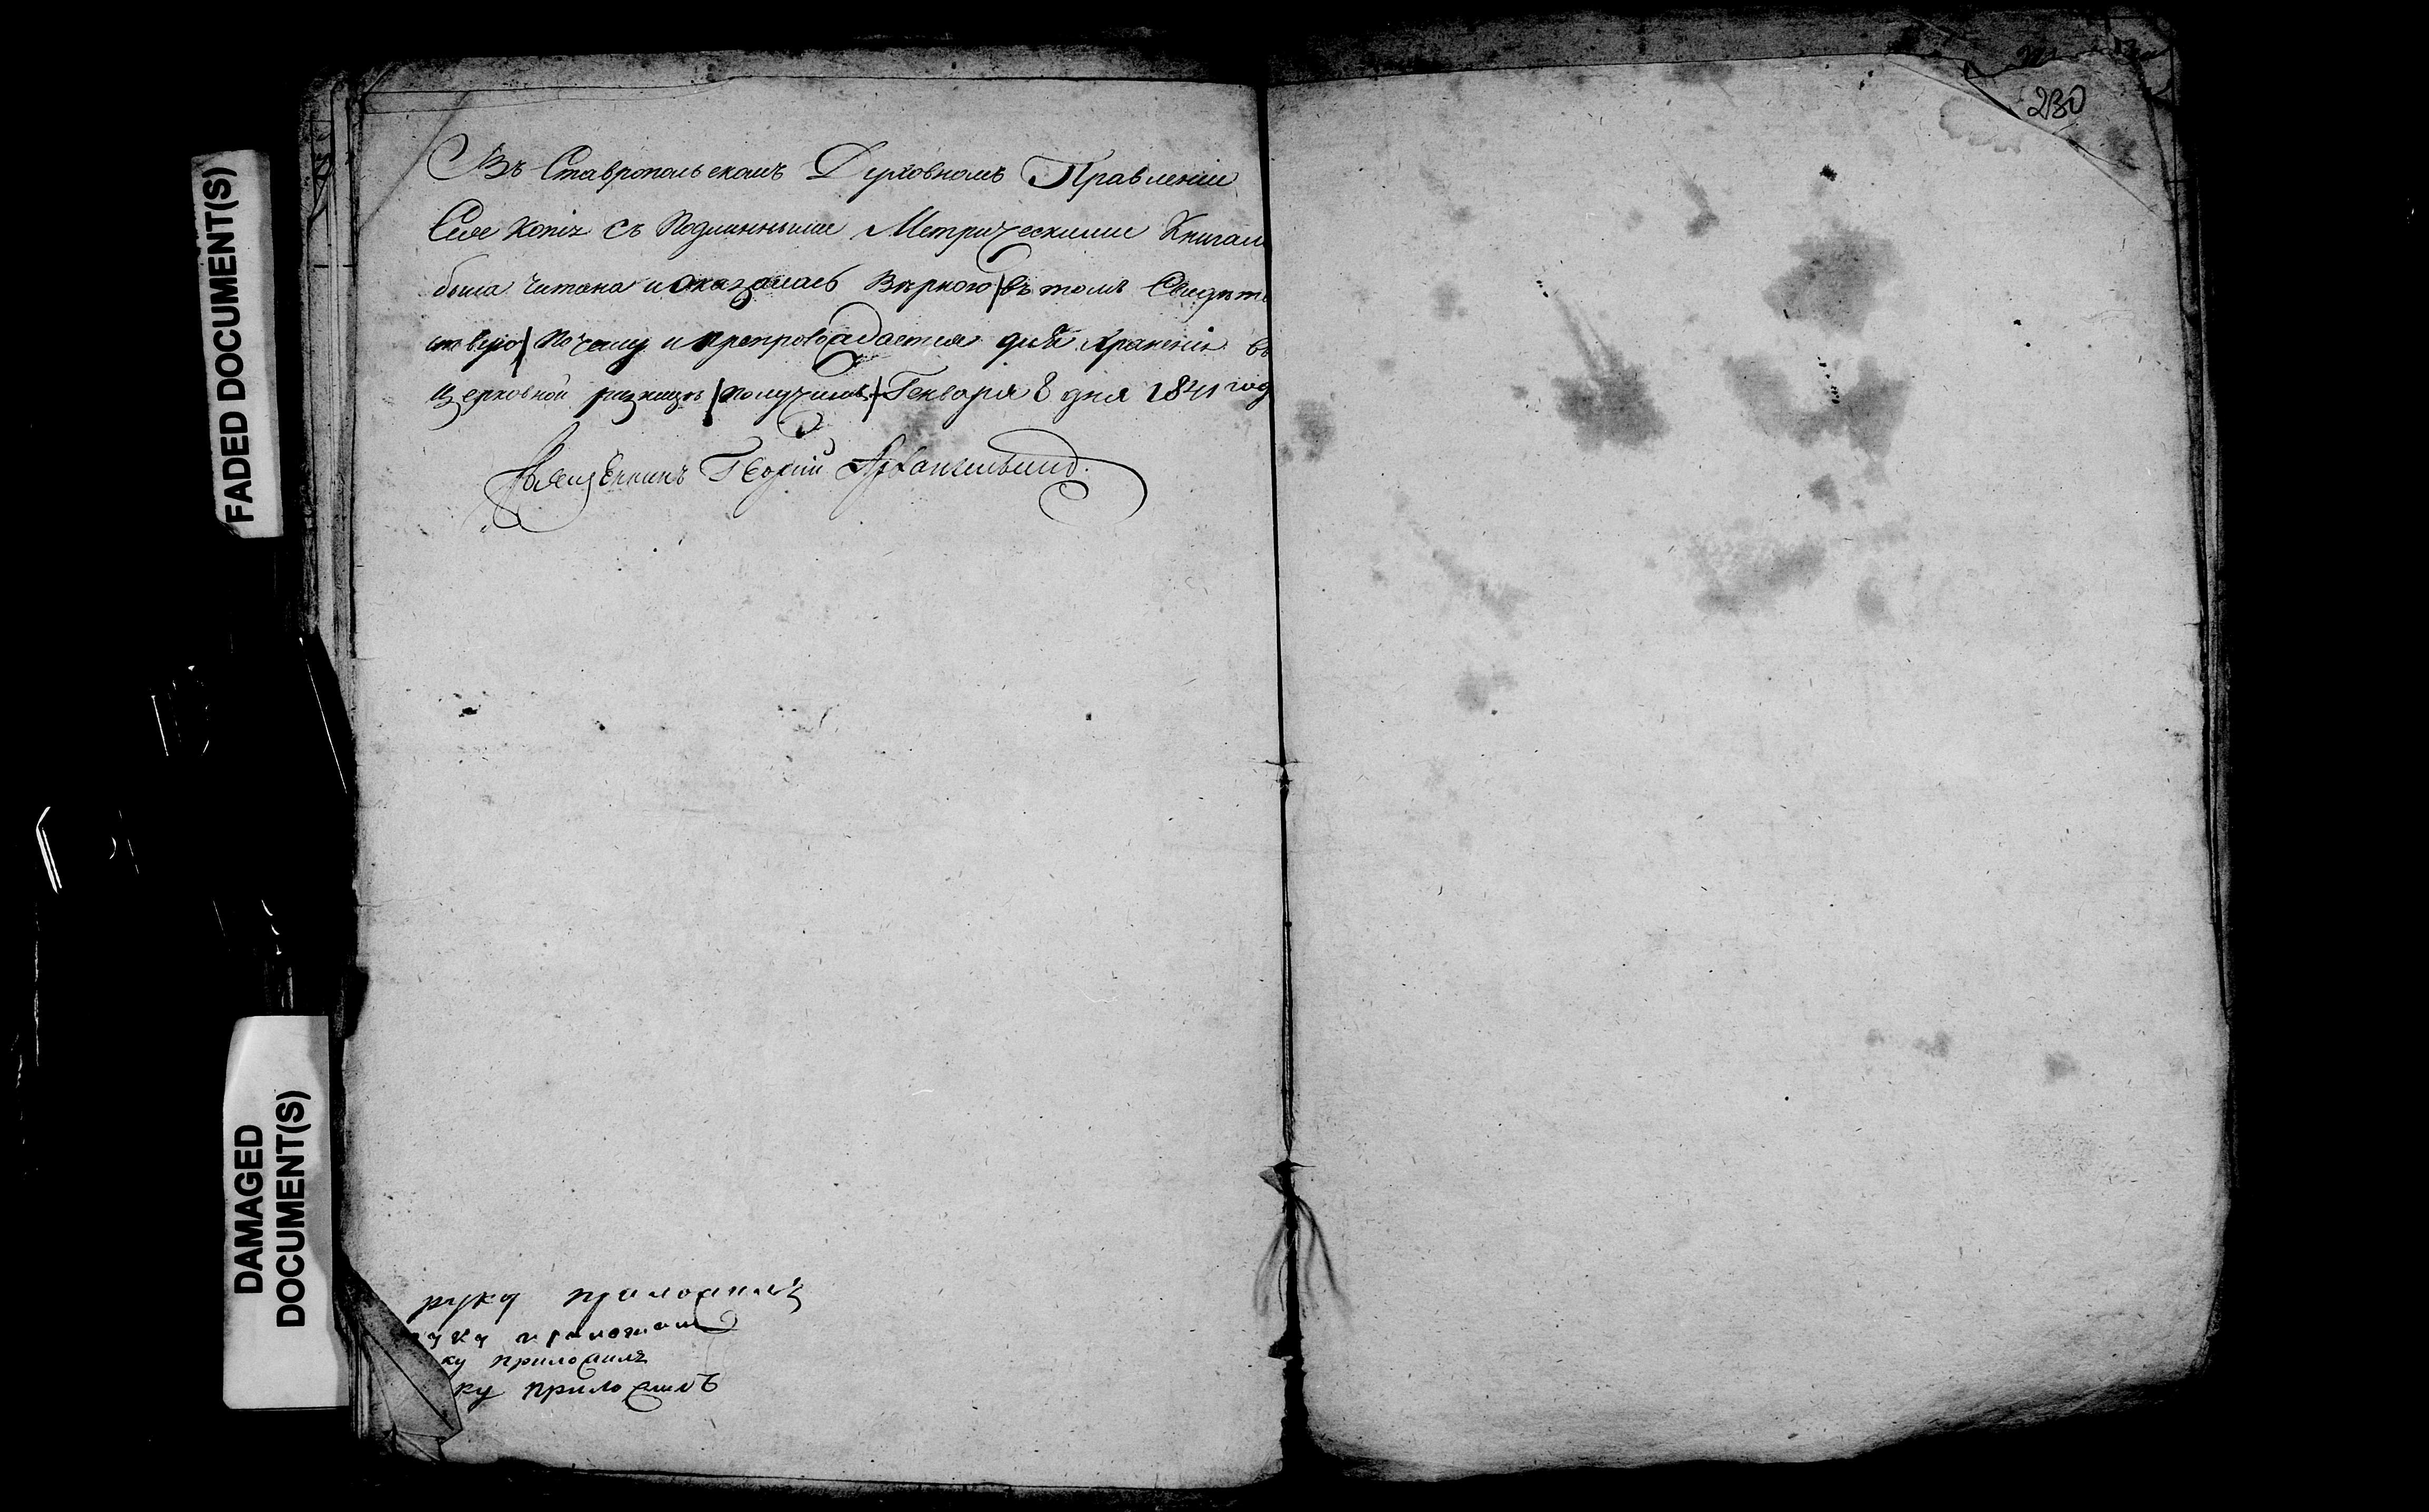 FADED DOCUMENT(S)
DAMAGED
DOCUMENT(S)
Въ Ставропольскомъ Духовномъ Правленіи
Сия копія съ подлинными Метрическими Книгам
была читана и оказалась Вѣрною въ томъ Свидѣте
ствую Почему и препровождается для храненія въ
церковной ризницѣ получилъ Генваря 8 дня 1841 год
Священникъ Георгій Архангельскій
руку приложилъ
руку приложил
ку приложилъ
ку приложилъ
230